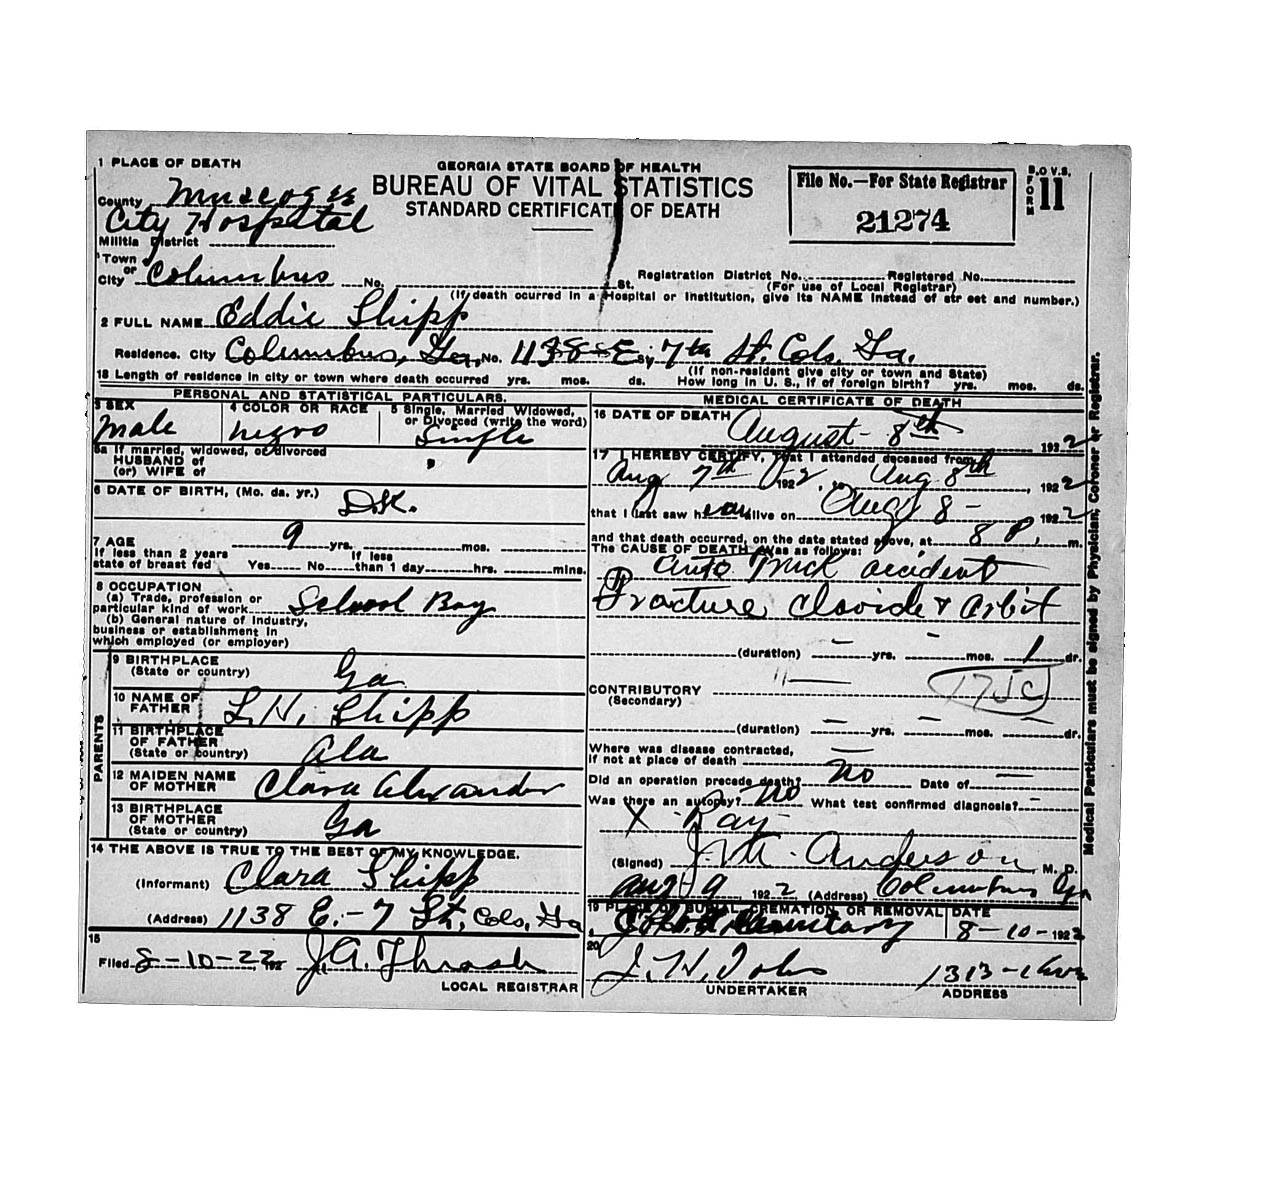 1 PLACE OF DEATH
GEORGIA STATE BOARD OF HEALTH
BUREAU OF VITAL STATISTICS
STANDARD CERTIFICATE OF DEATH
File No.—For State Registrar
21274
B.O.V.S.
FORM 11
County Muscogee
City Hospital
Militia District
Town or City Columbus No. St.
Registration District No. Registered No.
(For use of Local Registrar)
(If death ocurred in a Hospital or Institution, give its NAME instead of str eet and number.)
2 FULL NAME Eddie Shipp
Residence. City Columbus, Ga, No. 1138 E 7th St. Cols. Ga.
(If non-resident give city or town and State)
18 Length of residence in city or town where death occurred yrs. mos. ds. How long in U. S., if of foreign birth? yrs. mos. ds.
PERSONAL AND STATISTICAL PARTICULARS.
3 SEX
Male
4 COLOR OR RACE
negro
5 Single, Married Widowed, or Divorced (write the word)
Single
5a If married, widowed, or divorced
HUSBAND of
(or) WIFE of
6 DATE OF BIRTH, (Mo. da. yr.)
D.K.
7 AGE 9 yrs. mos.
If less than 2 years state of breast fed Yes No If less than 1 day hrs. mins.
8 OCCUPATION
(a) Trade, profession or particular kind of work School Boy
(b) General nature of Industry, business or establishment in which employed (or employer)
PARENTS
9 BIRTHPLACE
(State or country) Ga
10 NAME OF FATHER L.H. Shipp
11 BIRTHPLACE OF FATHER
(State or country) Ala
12 MAIDEN NAME OF MOTHER Clara Alexander
13 BIRTHPLACE OF MOTHER
(State or country) Ga
14 THE ABOVE IS TRUE TO THE BEST OF MY KNOWLEDGE.
(Informant) Clara Shipp
(Address) 1138 E.-7 St, Cols, Ga
15
Filed 8-10-22, 192 J.A. Thrash
LOCAL REGISTRAR
MEDICAL CERTIFICATE OF DEATH
16 DATE OF DEATH August- 8th 1922
17 I HEREBY CERTIFY, That I attended deceased from
Aug 7th 1922, to Aug 8th, 1922
that I last saw h alive on Aug 8- 1922
and that death occurred, on the date stated above, at 8 P. m.
The CAUSE OF DEATH was as follows:
Auto Truck accident
Fracture & orbit
(duration) — yrs. — mos. 1 dr.
CONTRIBUTORY
(Secondary)
175c
(duration) — yrs. — mos. — dr.
Where was disease contracted,
if not at place of death —
Did an operation precede death? No Date of —
Was there an autopsy? No What test confirmed diagnosis? —
X-Ray-
(Signed) Anderson M. D.
Aug 9 1922 (Address) Columbus Ga
19 PLACE OF BURIAL, CREMATION, OR REMOVAL DATE
8-10-1922
20
UNDERTAKER
1313-
ADDRESS
Medical Particulars must be signed by Physician, Coroner or Registrar.